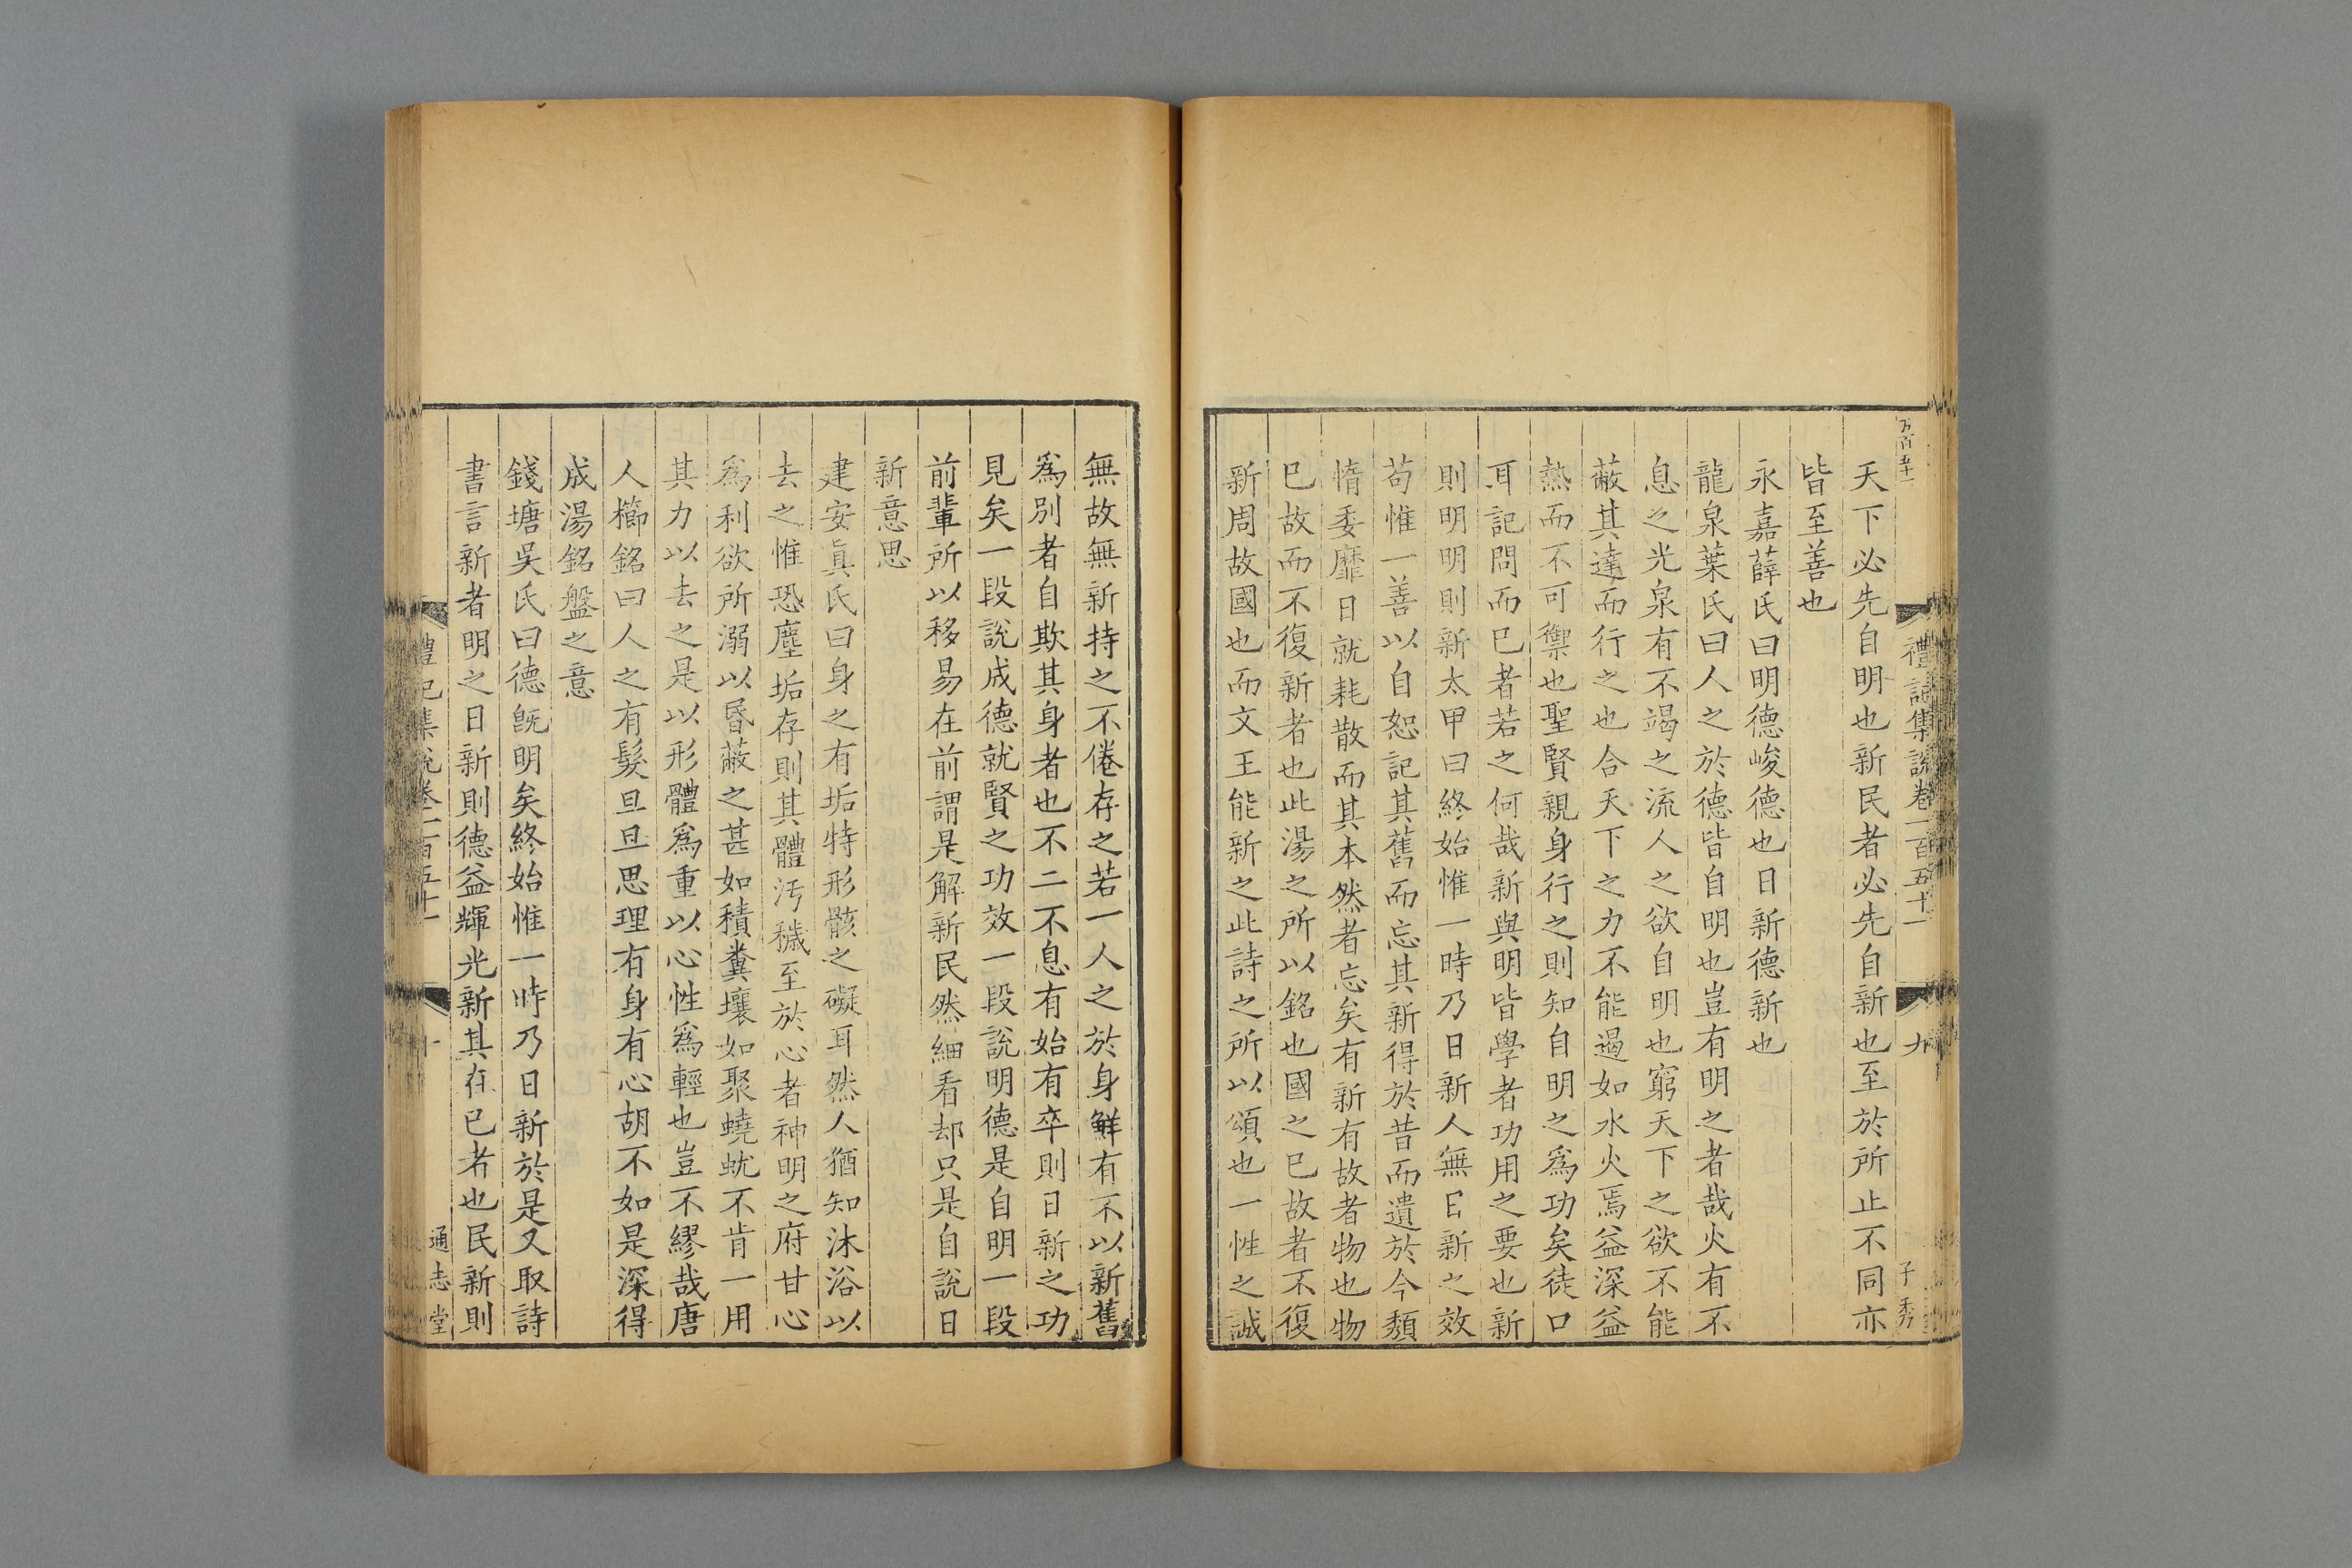 禮記集說卷一百五十一
九
子秀
天下必先自明也新民者必先自新也至於所止不同亦
皆至善也
永嘉薛氏曰明德峻德也日新德新也
龍泉葉氏曰人之於德皆自明也豈有明之者哉火有不
息之光泉有不竭之流人之欲自明也窮天下之欲不能
蔽其達而行之也合天下之力不能遏如水火焉益深益
熱而不可禦也聖賢親身行之則知自明之爲功矣徒口
耳記問而已者若之何哉新與明皆學者功用之要也新
則明明則新太甲曰終始惟一時乃日新人無日新之效
苟惟一善以自恕記其舊而忘其新得於昔而遺於今頹
惰委靡日就耗散而其本然者忘矣有新有故者物也物
巳故而不復新者也此湯之所以銘也國之巳故者不復
新周故國也而文王能新之此詩之所以頌也一性之誠
無故無新持之不倦存之若一人之於身鮮有不以新舊
爲別者自欺其身者也不二不息有始有卒則日新之功
見矣一段說成德就賢之功效一段說明德是自明一段
前輩所以移易在前謂是解新民然細看却只是自說日
新意思
建安眞氏曰身之有垢特形骸之礙耳然人猶知沐浴以
去之惟恐塵垢存則其體汚穢至於心者神明之府甘心
爲利欲所溺以昬蔽之甚如積糞壤如聚蟯蚘不肯一用
其力以去之是以形體爲重以心性爲輕也豈不繆哉唐
人櫛銘曰人之有髮旦旦思理有身有心胡不如是深得
成湯銘盤之意
錢塘吳氏曰德旣明矣終始惟一時乃日新於是又取詩
書言新者明之日新則德益輝光新其在巳者也民新則
禮記集說卷一百五十一
通志堂